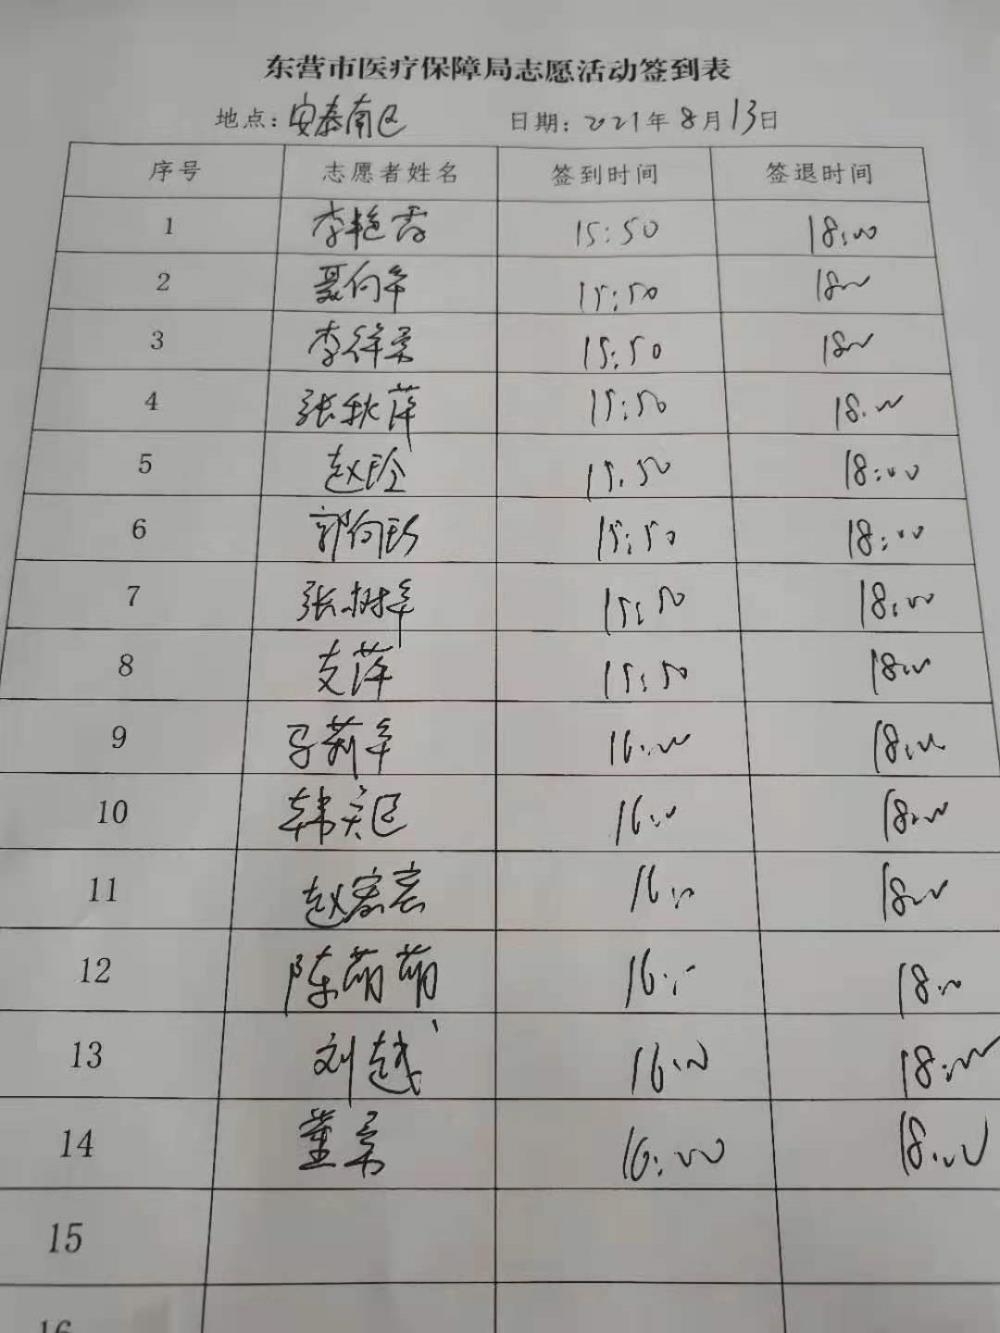 东营市医疗保障局志愿活动签到表
地点：安泰南区 日期：2021年8月13日
序号 志愿者姓名 签到时间 签退时间
1 李艳霞 15:50 18:00
2 聂向华 15:50 18:00
3 李祥柔 15:50 18:00
4 张秋萍 15:50 18:00
5 赵玲 15:50 18:00
6 郭向珍 15:50 18:00
7 张树华 15:50 18:00
8 支萍 15:50 18:00
9 马莉华 16:00 18:00
10 韩天臣 16:00 18:00
11 赵宏宏 16:00 18:00
12 陈萌萌 16:00 18:00
13 刘越 16:00 18:00
14 董柔 16:00 18:00
15
16